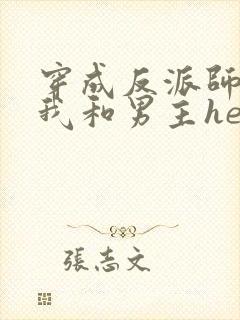 穿成反派師
我和男主he
張志文